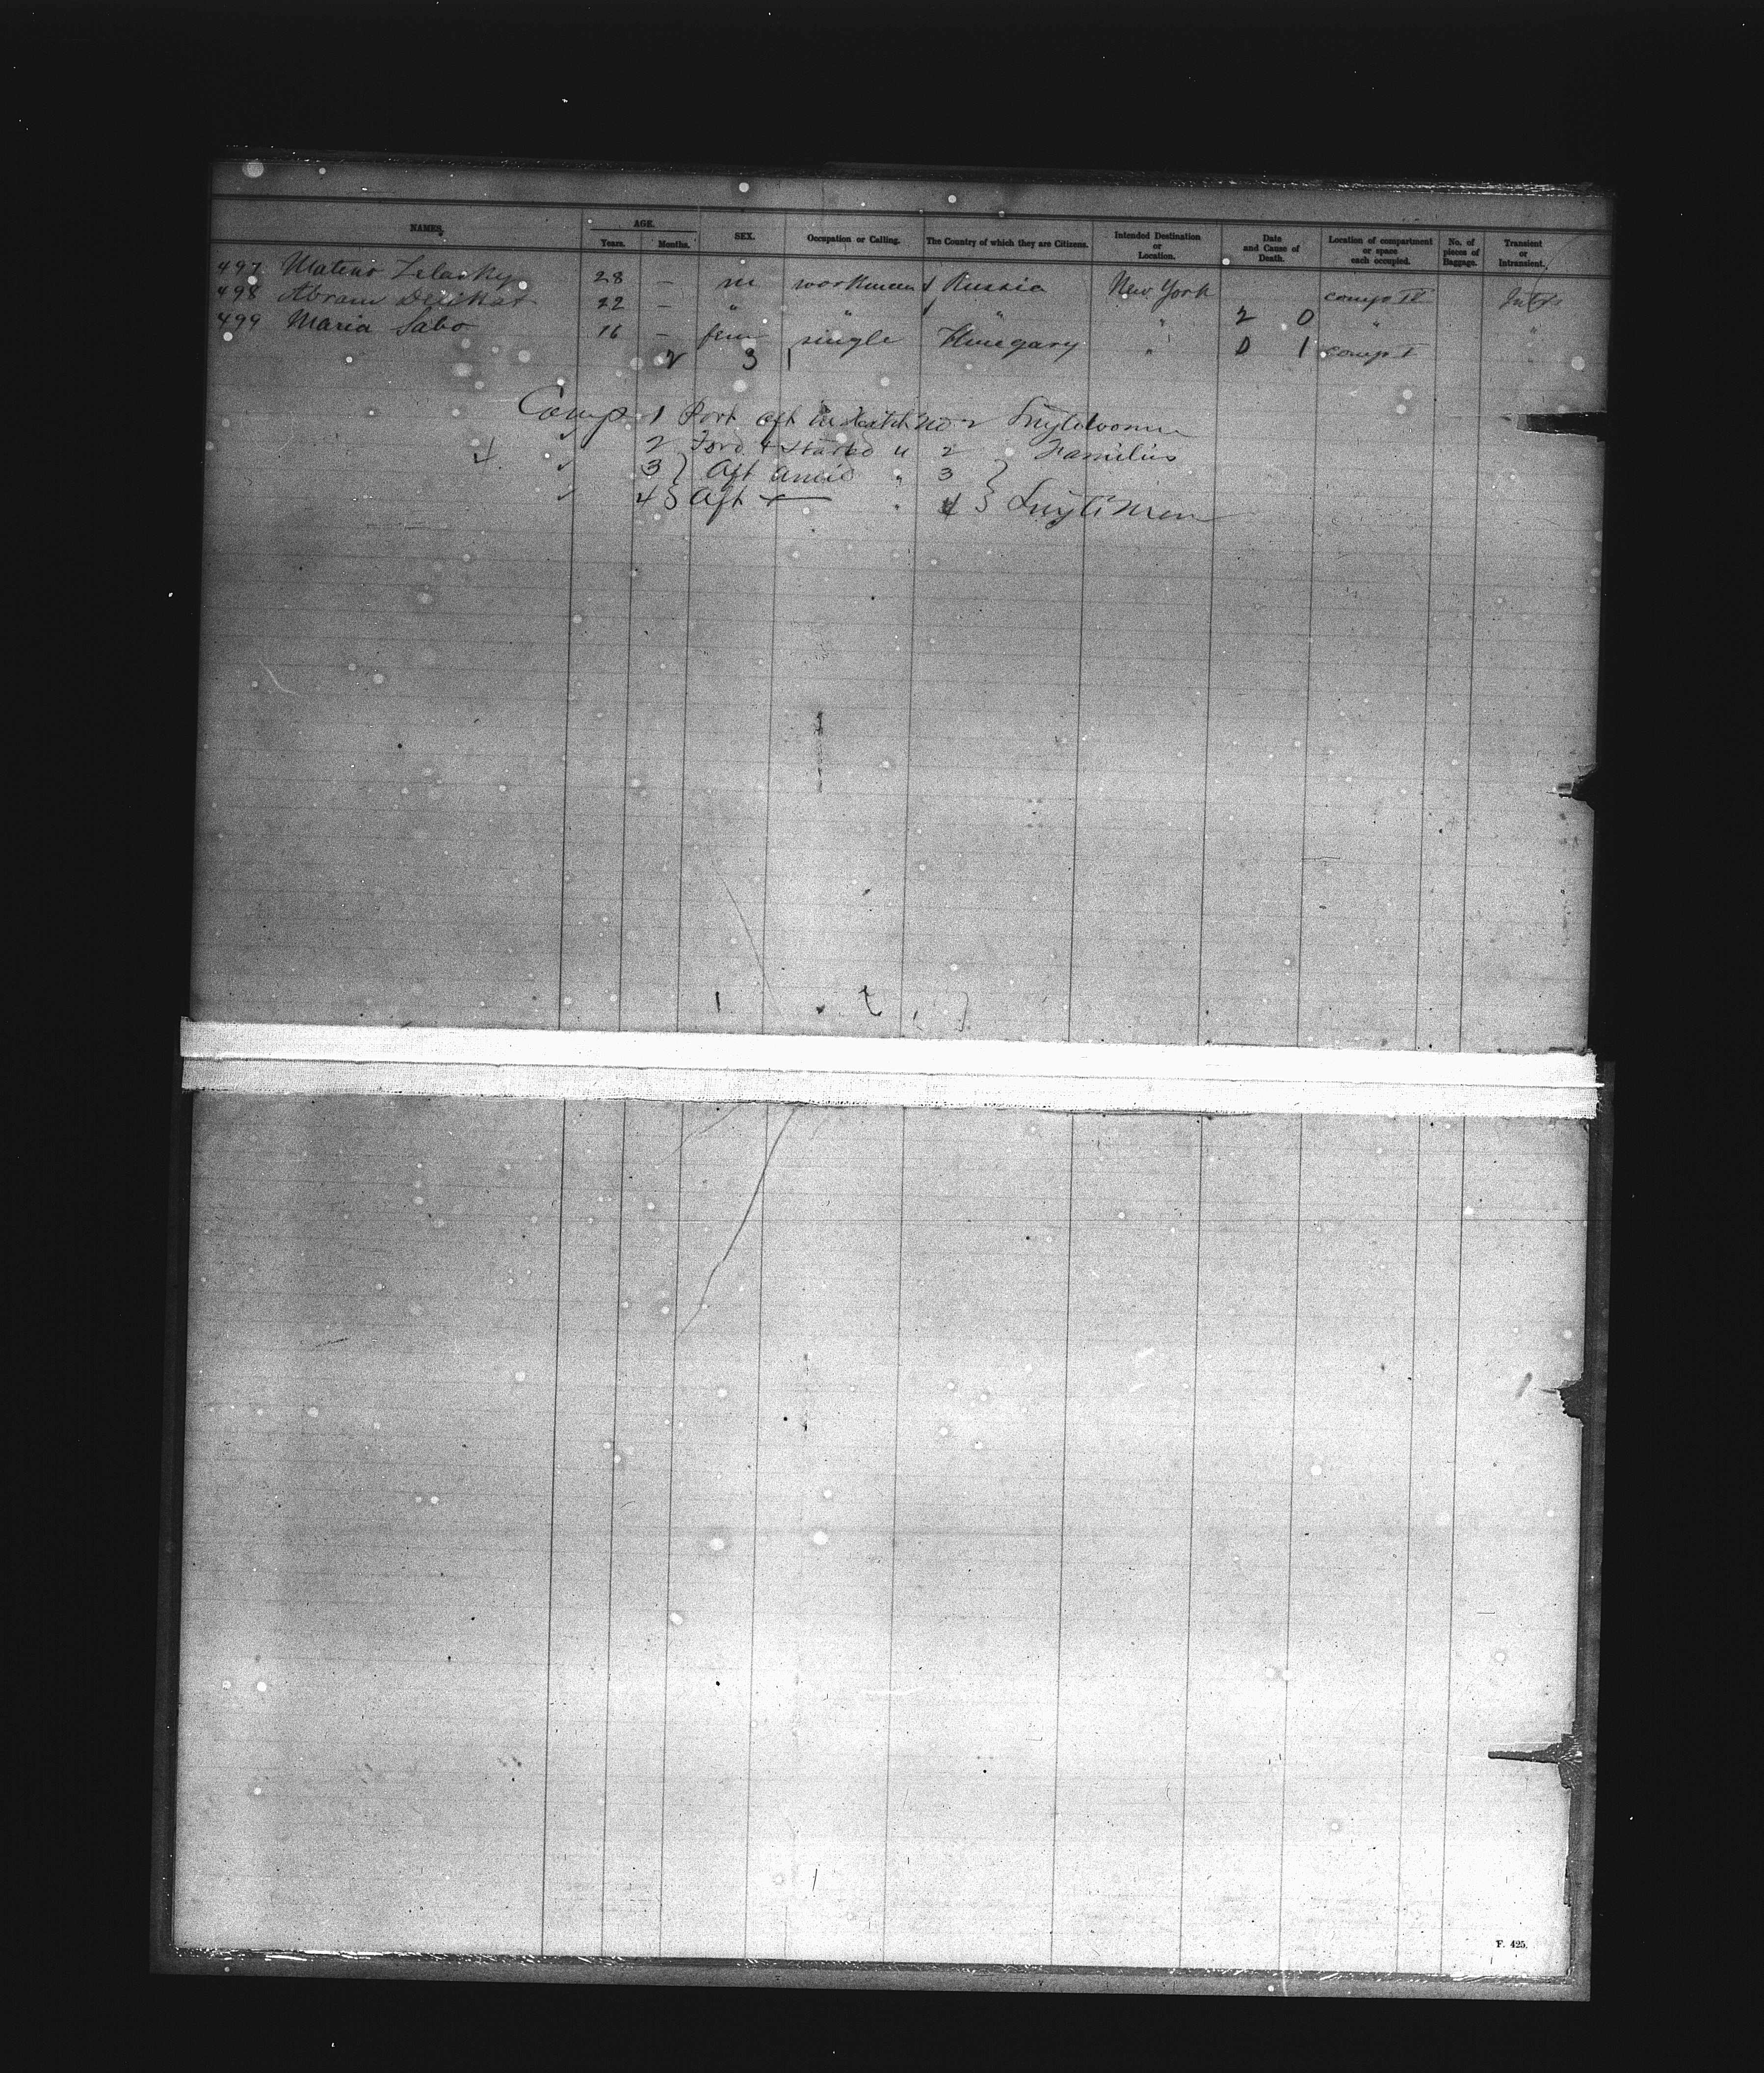 NAMES. AGE. Years. Months. SEX. Occupation or Calling. The Country of which they are Citizens. Intended Destination or Location. Date and Cause of Death. Location of compartment or space each occupied. No. of pieces of Baggage. Transient or Intransient.
497 28 — m workman Russia New York comp IV
498 Abram 22 — " " " " 2 0 " "
499 Maria Sabo 16 — fem single Hungary " 0 1 comp I
2 3 1
Comp. 1 Port aft Hatch No 2
2 Ford & Starbd " 2 Families
3 } Aft " 3 }
4 } Aft " 4 }
F. 425.